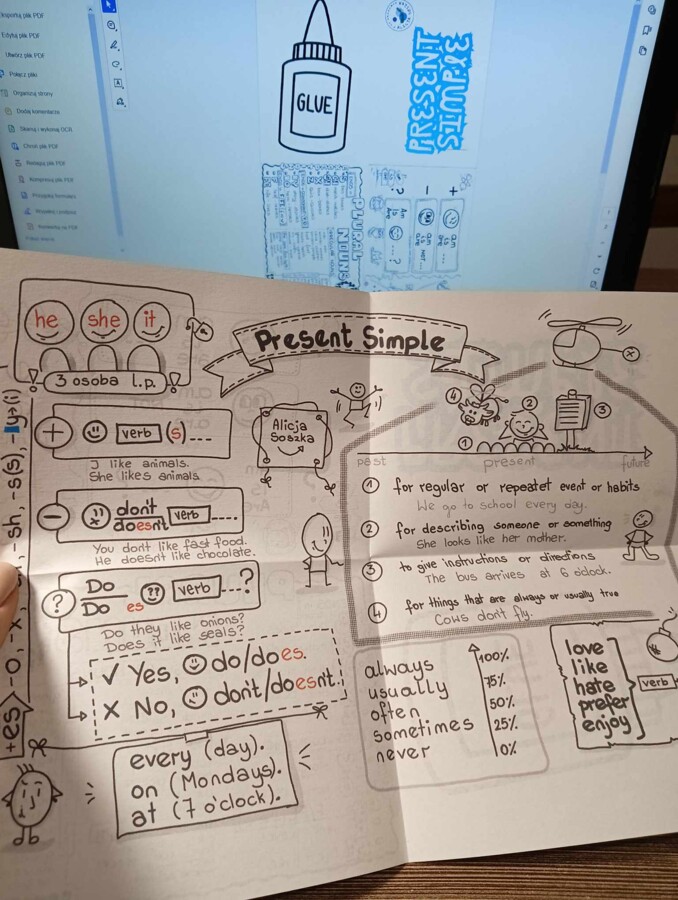 Edytuj plik PDF
Utwórz plik PDF
Połącz pliki
Organizuj strony
Dodaj komentarze
GLUE
PRESENT
SIMPLE
PLURAL
NOUNS
+
am
is
are
...
-
am
is not...
are
?
Am
Is
Are
...?
he she it
3 osoba l.p.
Present Simple
Alicja
Soszka
+ verb (s) ....
I like animals.
She likes animals
- don't
doesn't verb ....
You don't like fast food.
He doesn't like chocolate.
? Do
Do es verb ...?
Do they like onions?
Does it like seals?
✓ Yes, do/does.
X No, don't/doesn't.
every (day).
on (Mondays).
at (7 o'clock).
+es -o, -x, - sh, -s(s), -y→(i)
4 2 3 1
past present future
1 for regular or repeatet event or habits
We go to school every day.
2 for describing someone or something
She looks like her mother.
3 to give instructions or directions
The bus arrives at 6 o'clock.
4 for things that are always or usually true
Cows don't fly.
always 100%
usually 75%
often 50%
sometimes 25%
never 0%
love
like
hate
prefer
enjoy
verb